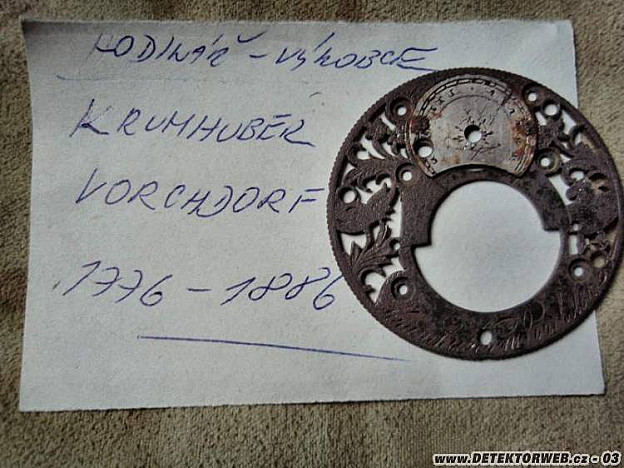 HODINÁŘ - VÝROBCE
KRUMHUBER
VORCHDORF
1776 - 1886
www.DETEKTORWEB.cz - 03